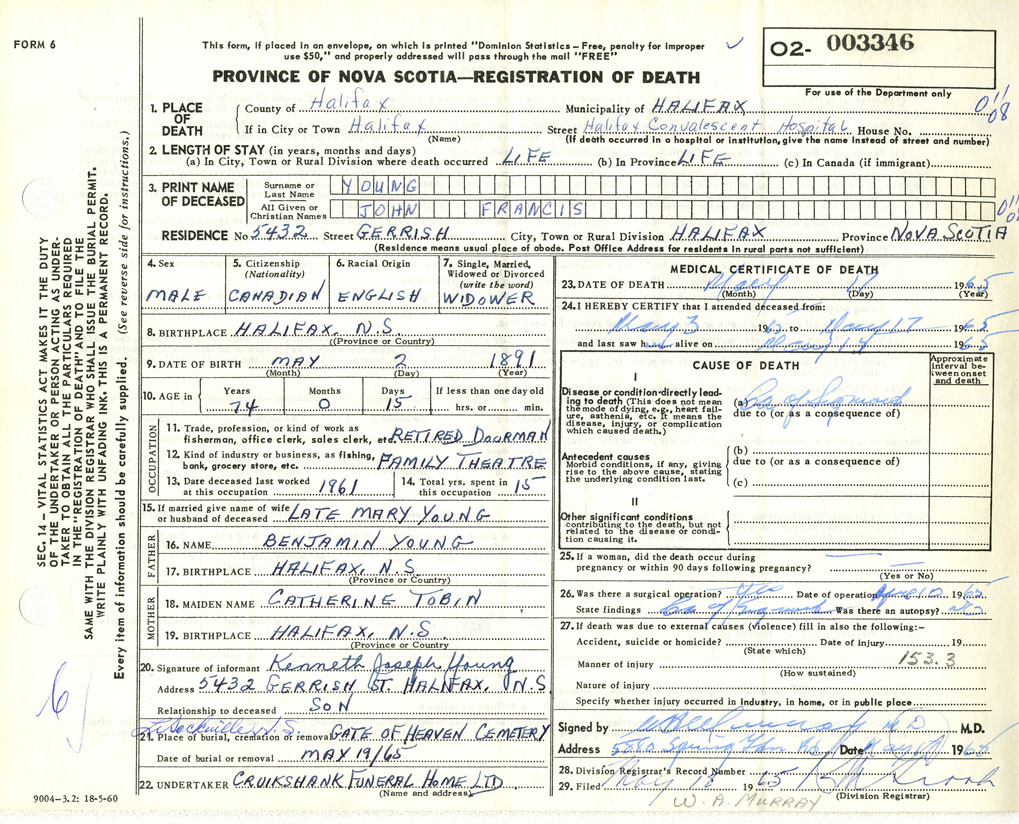 FORM 6
This form, if placed in an envelope, on which is printed "Dominion Statistics—Free, penalty for improper
use $50," and properly addressed will pass through the mail "FREE"
PROVINCE OF NOVA SCOTIA—REGISTRATION OF DEATH
O2- 003346
For use of the Department only
SEC. 14 – VITAL STATISTICS ACT MAKES IT THE DUTY
OF THE UNDERTAKER OR PERSON ACTING AS UNDER-
TAKER TO OBTAIN ALL THE PARTICULARS REQUIRED
IN THE "REGISTRATION OF DEATH" AND TO FILE THE
SAME WITH THE DIVISION REGISTRAR WHO SHALL ISSUE THE BURIAL PERMIT.
WRITE PLAINLY WITH UNFADING INK. THIS IS A PERMANENT RECORD.
Every item of information should be carefully supplied. (See reverse side for instructions.)
1. PLACE OF DEATH
County of Halifax Municipality of HALIFAX
If in City or Town Halifax Street Halifax Convalescent Hospital House No.
(Name) (If death occurred in a hospital or institution, give the name instead of street and number)
2. LENGTH OF STAY (in years, months and days)
(a) In City, Town or Rural Division where death occurred LIFE (b) In Province LIFE (c) In Canada (if immigrant)
3. PRINT NAME OF DECEASED
Surname or Last Name YOUNG
All Given or Christian Names JOHN FRANCIS
RESIDENCE No 5432 Street GERRISH City, Town or Rural Division HALIFAX Province NOVA SCOTIA
(Residence means usual place of abode. Post Office Address for residents in rural parts not sufficient)
4. Sex MALE
5. Citizenship (Nationality) CANADIAN
6. Racial Origin ENGLISH
7. Single, Married, Widowed or Divorced (write the word) WIDOWER
8. BIRTHPLACE HALIFAX, N.S.
(Province or Country)
9. DATE OF BIRTH MAY 2 1891
(Month) (Day) (Year)
10. AGE in Years 74 Months 0 Days 15 If less than one day old hrs. or min.
OCCUPATION
11. Trade, profession, or kind of work as
fisherman, office clerk, sales clerk, etc. RETIRED DOORMAN
12. Kind of industry or business, as fishing,
bank, grocery store, etc. FAMILY THEATRE
13. Date deceased last worked at this occupation 1961
14. Total yrs. spent in this occupation 15
15. If married give name of wife
or husband of deceased LATE MARY YOUNG
FATHER
16. NAME BENJAMIN YOUNG
17. BIRTHPLACE HALIFAX, N.S
(Province or Country)
MOTHER
18. MAIDEN NAME CATHERINE TOBIN
19. BIRTHPLACE HALIFAX, N.S
(Province or Country)
20. Signature of informant Kenneth Joseph Young
Address 5432 GERRISH ST. HALIFAX, N.S.
Relationship to deceased SON
Sackville N.S.
21. Place of burial, cremation or removal GATE OF HEAVEN CEMETERY
Date of burial or removal MAY 19/65
22. UNDERTAKER CRUIKSHANK FUNERAL HOME LTD
(Name and address)
9004–3.2: 18-5-60
MEDICAL CERTIFICATE OF DEATH
23. DATE OF DEATH May 17 1965
(Month) (Day) (Year)
24. I HEREBY CERTIFY that I attended deceased from:
May 3 1965 to May 17 1965
and last saw h alive on May 17 1965
CAUSE OF DEATH
Approximate interval between onset and death
I
Disease or condition directly leading to death (This does not mean the mode of dying, e.g., heart failure, asthenia, etc. It means the disease, injury, or complication which caused death.)
(a) Ca of Sigmoid
due to (or as a consequence of)
Antecedent causes
Morbid conditions, if any, giving rise to the above cause, stating the underlying condition last.
(b)
due to (or as a consequence of)
(c)
II
Other significant conditions
contributing to the death, but not related to the disease or condition causing it.
25. If a woman, did the death occur during
pregnancy or within 90 days following pregnancy?
(Yes or No)
26. Was there a surgical operation? Yes Date of operation 1965
State findings Ca of Sigmoid Was there an autopsy? no
27. If death was due to external causes (violence) fill in also the following:—
Accident, suicide or homicide? Date of injury 19
(State which)
153.3
Manner of injury
(How sustained)
Nature of injury
Specify whether injury occurred in Industry, in home, or in public place
Signed by M.D.
Address 5880 Spring Gdn Rd. Date May 1965
28. Division Registrar's Record Number
29. Filed May 18 1965
(Division Registrar)
W. A. MURRAY